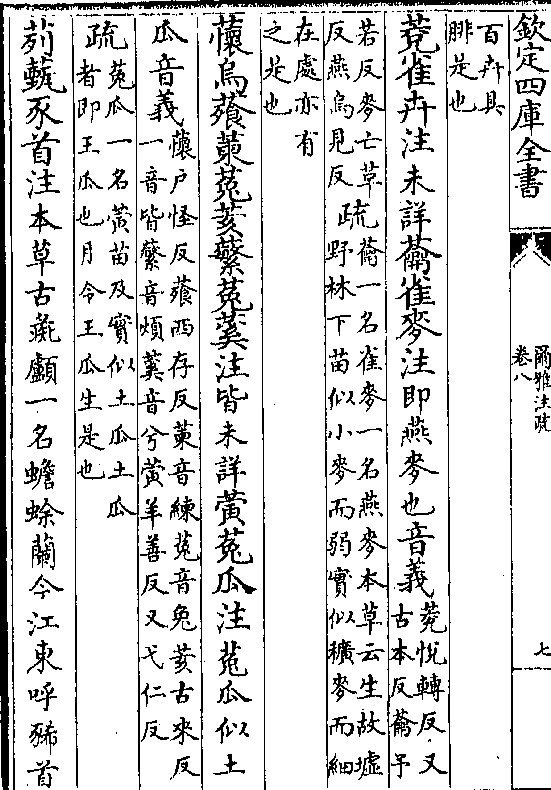 欽定四庫全書
爾雅注疏
卷八
七
百卉具
腓是也
莌雀卉注未詳蘥雀麥注即燕麥也音義
莌悅轉反又
古本反蘥予
若反麥亡草
反燕烏見反
疏
蘥一名雀麥一名燕麥本草云生故墟
野林下苗似小麥而弱實似穬麥而細
在處亦有
之是也
蘹烏薞蓫菟荄蘩菟蒵注皆未詳黃菟瓜注菟瓜似土
瓜音義
蘹戶怪反薞西存反蓫音練菟音兔荄古來反
一音皆蘩音煩蒵音兮黃羊善反又弋仁反
疏
菟瓜一名黃苗及實似土瓜土瓜
者即王瓜也月令王瓜生是也
茢薽豕首注本草古彘顱一名蟾蜍蘭今江東呼豨首